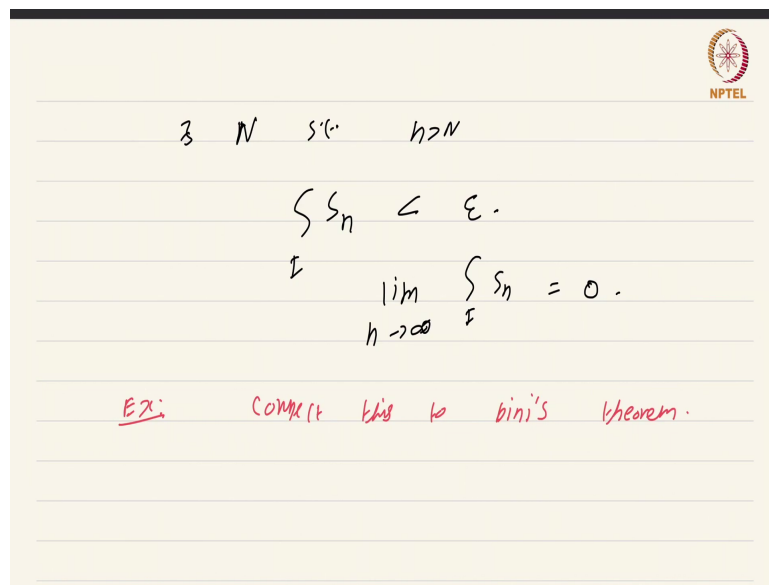 NPTEL
∃ N s.t. n>N
∫_I S_n < ε.
lim_{n→∞} ∫_I S_n = 0.
Ex: Connect this to Dini's theorem.